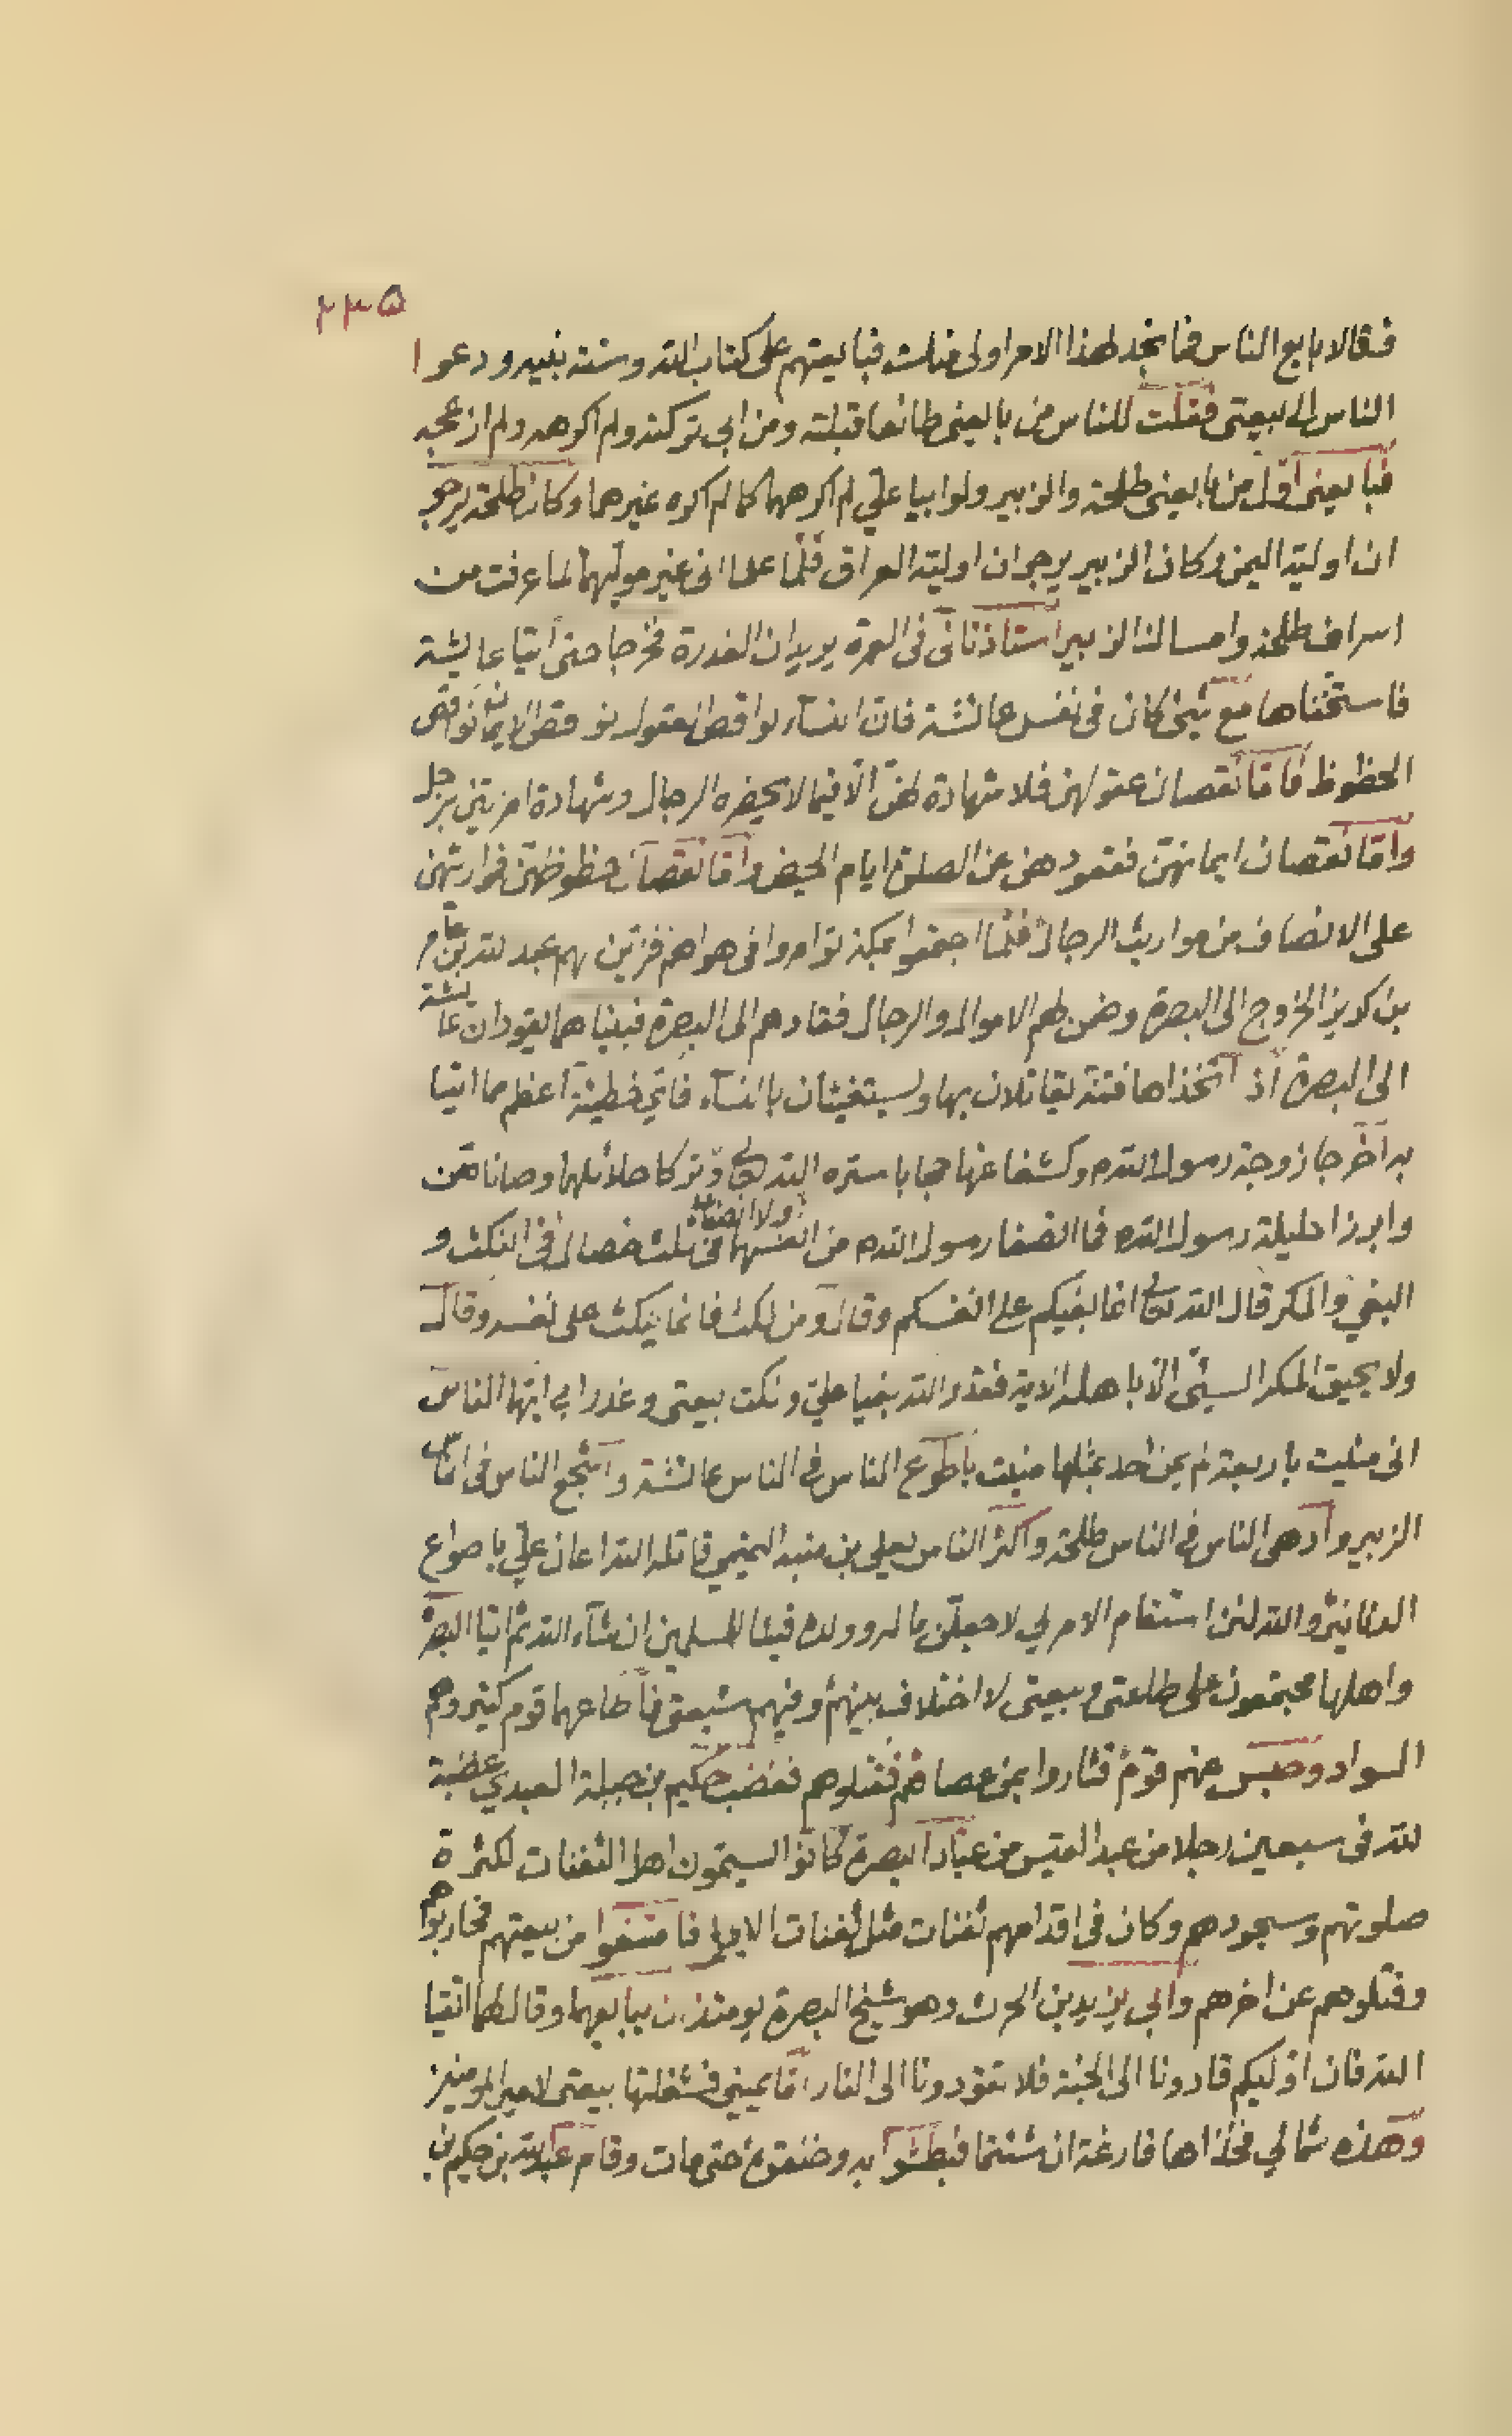 ٢٣٥
فقالا بايع الناس فما نجد لهذا الامر اولى منك فبايعتهم على كتاب الله وسنة نبيه ودعوا
الناس الى بيعتي فقلت للناس من بايعني طائعا قبلته ومن ابى تركته ولم اكرهه ولم ازعجه
فبايعني اول من بايعني طلحة والزبير ولو ابيا علي لم اكرههما كما لم اكره غيرهما وكان طلحة يرجو
ان اوليه اليمن وكان الزبير يرجو ان اوليه العراق فلما علما اني غير موليهما لما عرفت من
اسراف طلحة وامساك الزبير استاذناني في العمرة يريدان الغدرة فخرجا حتى أتيا عايشة
فاستخفاها مع شئ كان في نفس عائشة فان النسآء نواقص العقول نوقص الايمان نواقص
الحظوظ فأما نقصان عقولهن فلا شهادة لهن الا فيما لا يحضره الرجال وشهادة امرئتين برجل
وأما نقصان ايمانهن فقعودهن عن الصلوة ايام الحيض وأما نقصان حظوظهن فمواريثهن
على الانصاف من مواريث الرجال فلما اجمعوا بمكة توامروا في هواهم فزين لهم عبد الله بن عامر
بن كريز الخروج الى البصرة وضمن لهم الاموال والرجال فقادهم الى البصرة فبينا هما يقودان عائشة
الى البصرة اذ اتخذاها فئة يقاتلان بها ويستغيثان بالنسآء فاي خطيئة اعظم مما اتيا
به اخرجا زوجة رسول الله ص وكشفا عنها حجابا ستره الله تعالى وتركا حلائلهما وصانا هن
وابرزا حليلة رسول الله ص فما انصفا رسول الله ص ولا انصفا من انفسهما في ثلث خصال في النكث و
البغي والمكر قال الله تعالى انما بغيكم على انفسكم وقال ومن نكث فانما ينكث على نفسه وقال
ولا يحيق المكر السيئ الا باهله الاية فقد والله بغيا علي ونكث بيعتي وغدرا بي ايها الناس
اني منيت باربعة لم يمن احد بمثلها منيت باطوع الناس في الناس عائشة واشجع الناس في الناس
الزبير وادهى الناس في الناس طلحة واكثر الناس يعلى بن منبه التميمي قاتله الله اعان علي باصواع
الدنانير والله لئن استقام الامر لي لاجعلن ماله وولده فيئا للمسلمين ان شآء الله ثم اتيا البصرة
واهلها مجتمعون على طاعتي وبيعتي لا اختلاف بينهم وفيهم شيعتي فاطاعهما قوم كثير وهم
السواد وحبس عنهم قوم فثاروا بمن عصاهم فقتلوهم فغضب حكيم بن جبلة العبدي غضبة
لله في سبعين رجلا من عبد القيس من عباد البصرة كانوا يسمون اهل الثفنات لكثرة
صلوتهم وسجودهم وكان في اقدامهم ثفنات مثل ثفنات الابل فامتنعوا من بيعتهم فحاربوهم
وقتلوهم عن اخرهم وابى يزيد بن الحرث وهو شيخ البصرة يومئذ ان يبايعهما وقال لهما اتقيا
الله فان اوليكم قادونا الى الجنة فلا تقودونا الى النار اما يميني فشغلتها بيعتي لامير المومنين
وهذه شمالي فخذاها فارغة ان شئتما فبطشوا به وخنقوه حتى مات وقام عبد الله بن حكيم بن